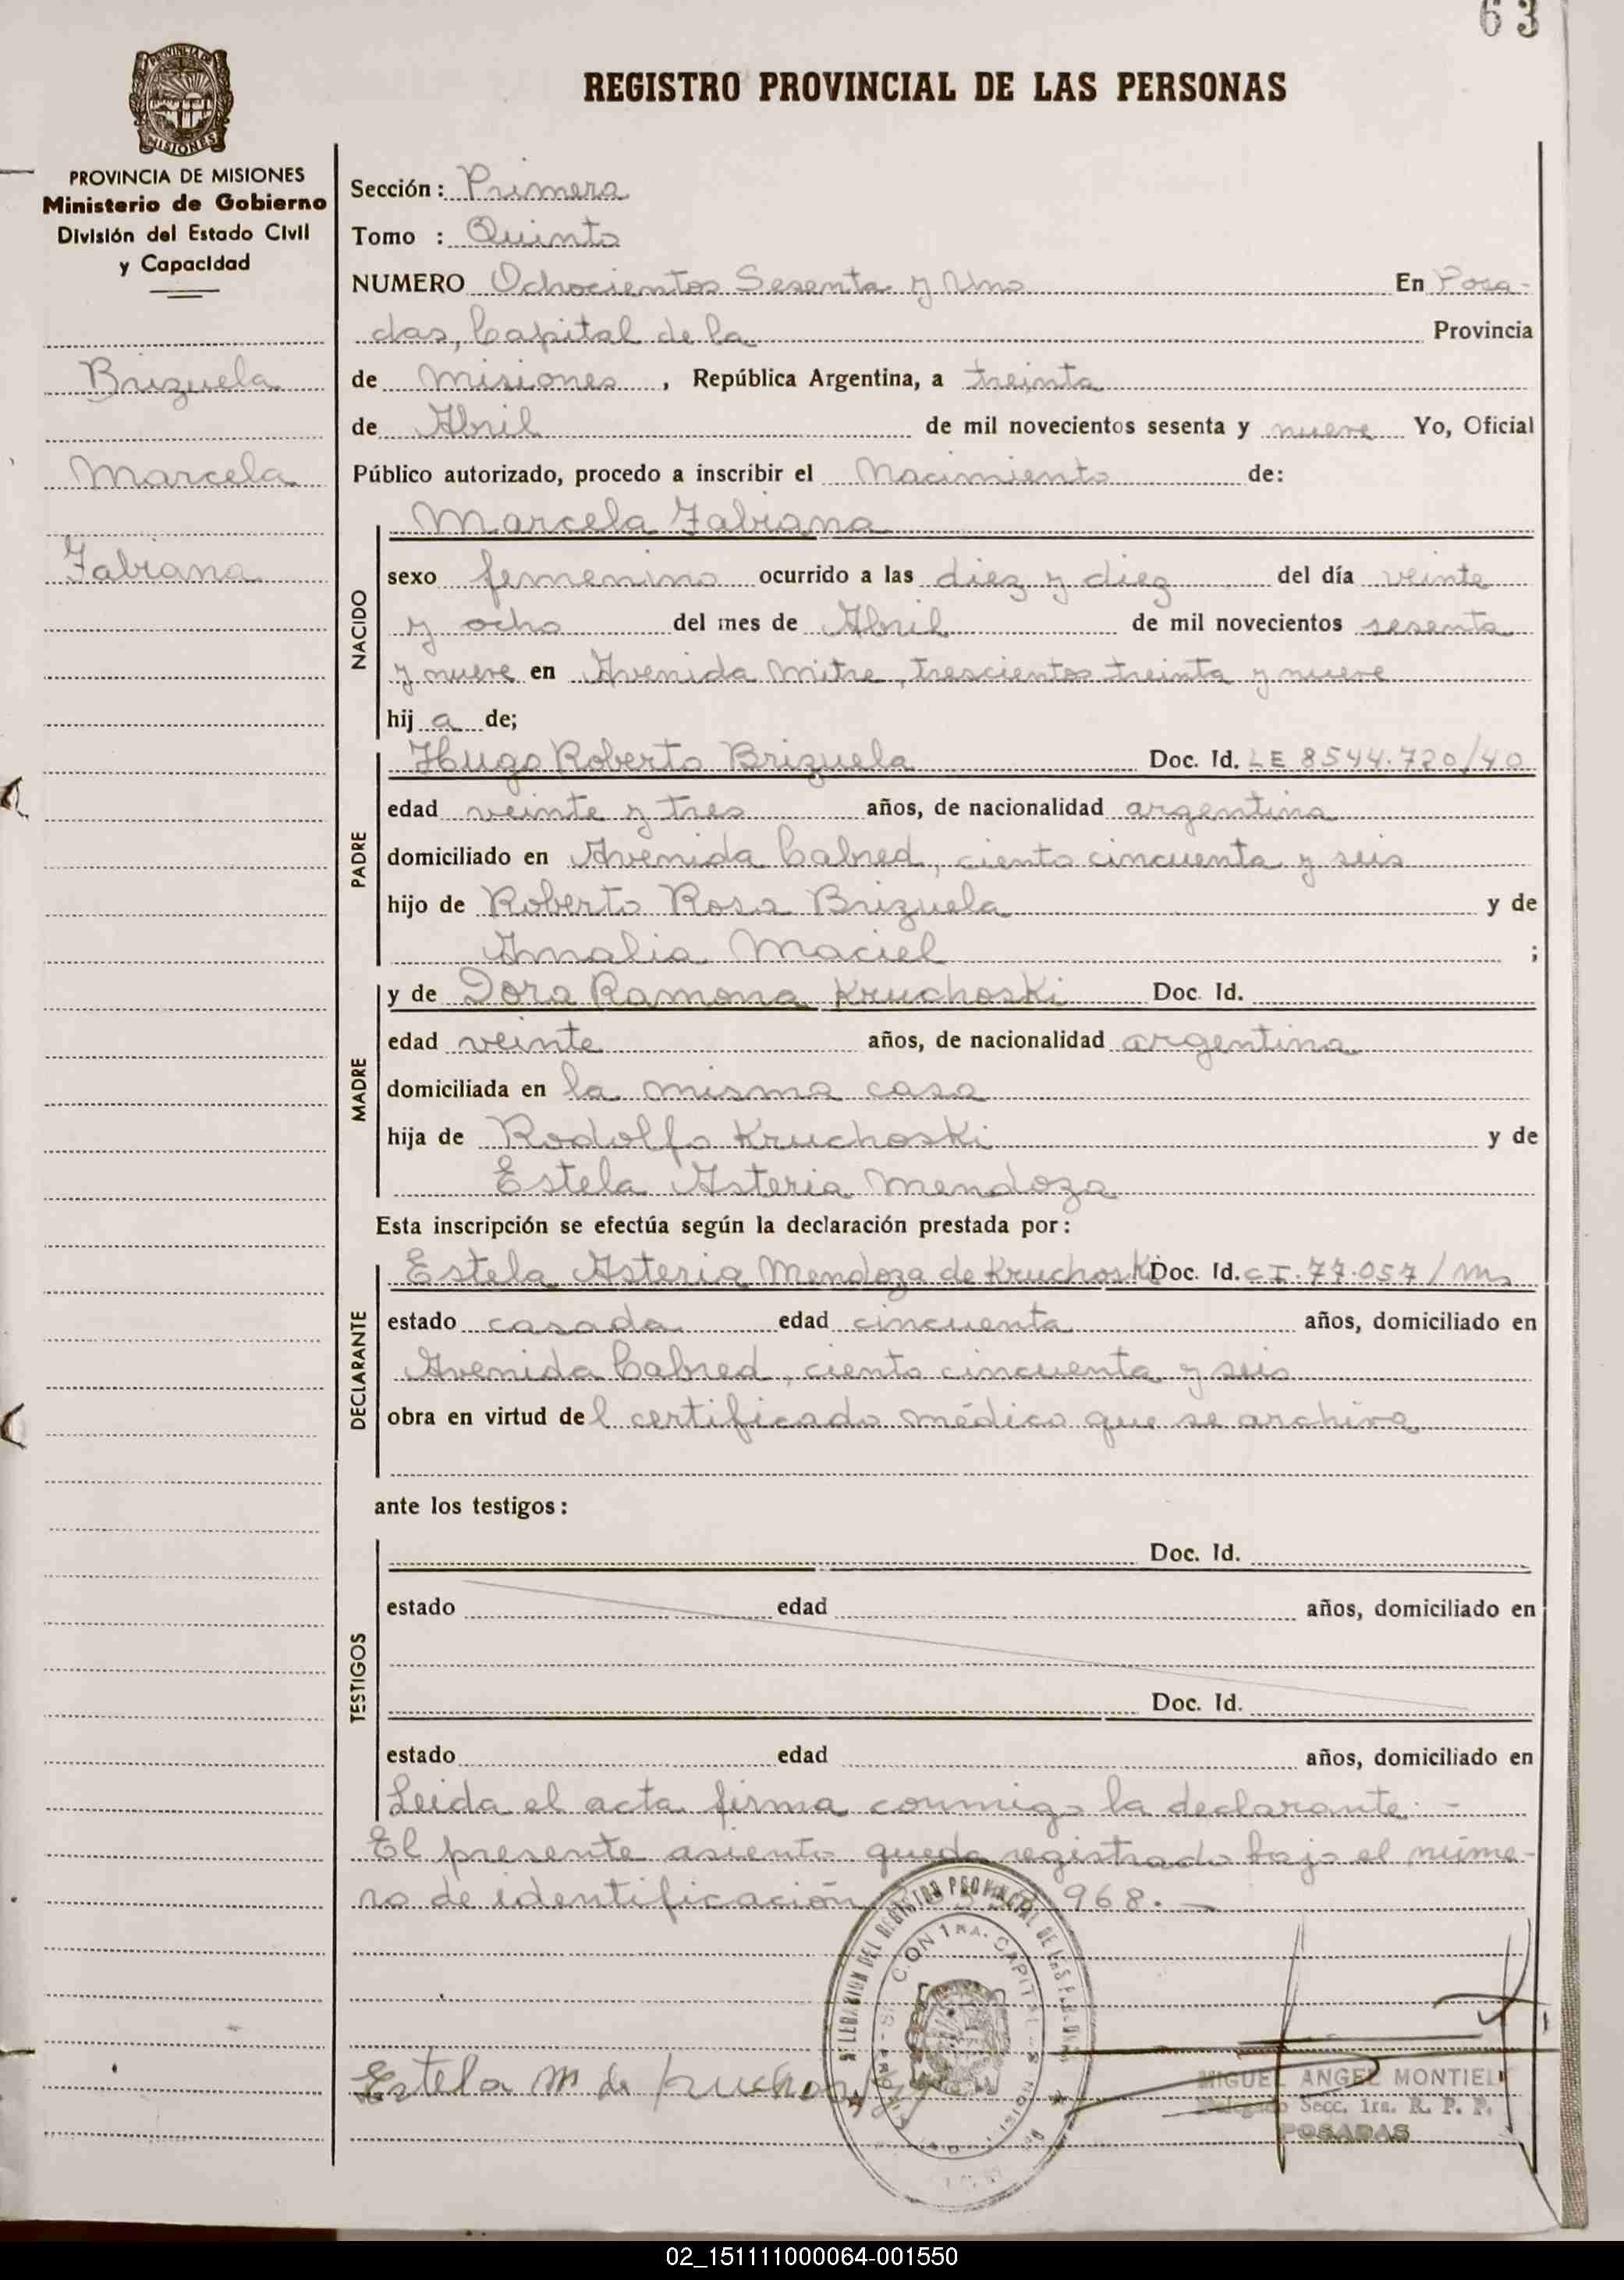 63
REGISTRO PROVINCIAL DE LAS PERSONAS
MISIONES
PROVINCIA DE MISIONES
Ministerio de Gobierno
División del Estado Civil
y Capacidad
Brizuela
Marcela
Fabiana
Sección: Primera
Tomo : Quinto
NUMERO Ochocientos Sesenta y Uno En Posa-
das, Capital de la Provincia
de Misiones, República Argentina, a treinta
de Abril de mil novecientos sesenta y nueve Yo, Oficial
Público autorizado, procedo a inscribir el Nacimiento de:
NACIDO
Marcela Fabiana
sexo femenino ocurrido a las diez y diez del día veinte
y ocho del mes de Abril de mil novecientos sesenta
y nueve en Avenida Mitre, trescientos treinta y nueve
hij a de;
PADRE
Hugo Roberto Brizuela Doc. Id. LE 8544.720/40
edad veinte y tres años, de nacionalidad argentina
domiciliado en Avenida Cabred, ciento cincuenta y seis
hijo de Roberto Rosa Brizuela y de
Amalia Maciel ;
MADRE
y de Dora Ramona Kruchoski Doc. Id.
edad veinte años, de nacionalidad argentina
domiciliada en la misma casa
hija de Rodolfo Kruchoski y de
Estela Asteria Mendoza
Esta inscripción se efectúa según la declaración prestada por:
DECLARANTE
Estela Asteria Mendoza de Kruchoski Doc. Id. CI. 77.057/Ms
estado casada edad cincuenta años, domiciliado en
Avenida Cabred, ciento cincuenta y seis
obra en virtud del certificado médico que se archiva
ante los testigos:
TESTIGOS
Doc. Id.
estado edad años, domiciliado en
Doc. Id.
estado edad años, domiciliado en
Leida el acta firma conmigo la declarante.-
El presente asiento queda registrado bajo el núme-
ro de identificación 968.-
Estela M de Kruchoski
MIGUEL ANGEL MONTIEL
Delegado Secc. 1ra. R. P. P.
POSADAS
02_151111000064-001550